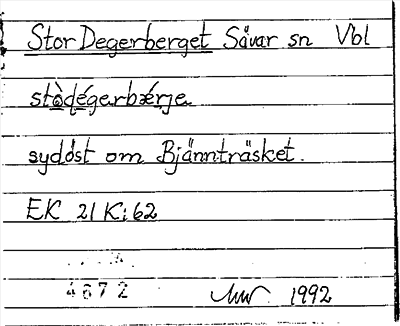 Stor Degerberget Sävar sn Vbl
stòdégerbǽrje
sydöst om Bjännträsket.
EK 21 K:62
4672
1992